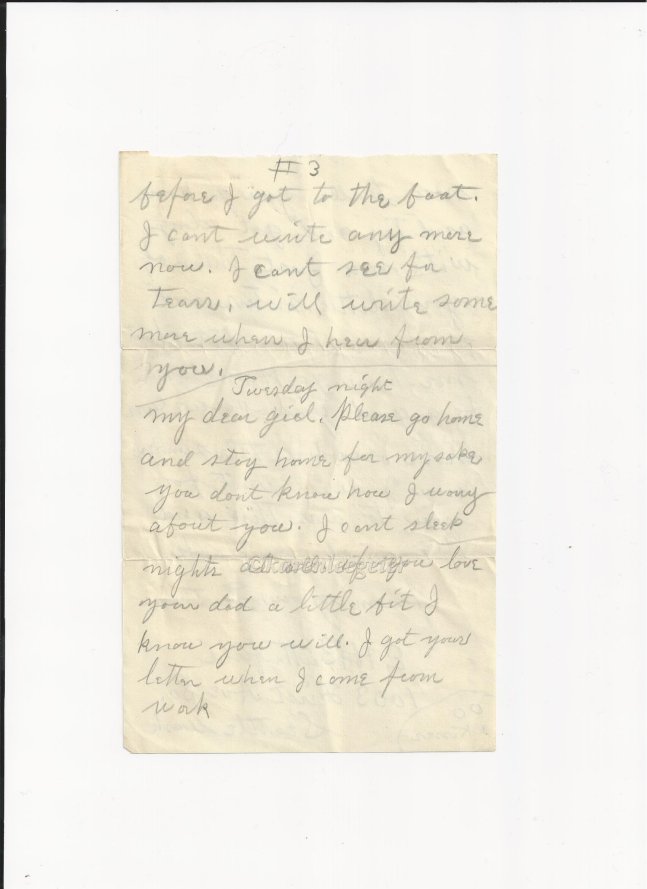 # 3
before I got to the boat.
I cant write any more
now. I cant see for
Tears. will write some
more when I hear from
you.
Tuesday night
my dear girl. Please go home
and stay home for my sake
you dont know how I worry
about you. I cant sleek
nights if you love
your dad a little bit I
know you will. I got your
letter when I come from
work